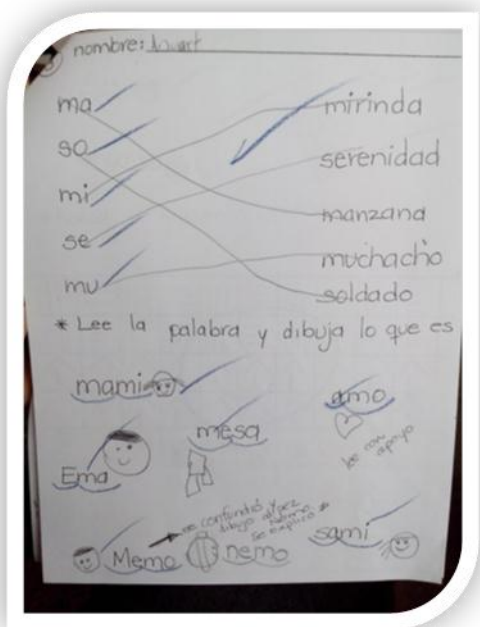 nombre:
ma mirinda
so serenidad
mi manzana
se muchacho
mu soldado
* Lee la palabra y dibuja lo que es
mami amo
mesa lee con apoyo
Ema
se confundió y
dibujo al pez
Nemo
se explicó *
Memo nemo sami